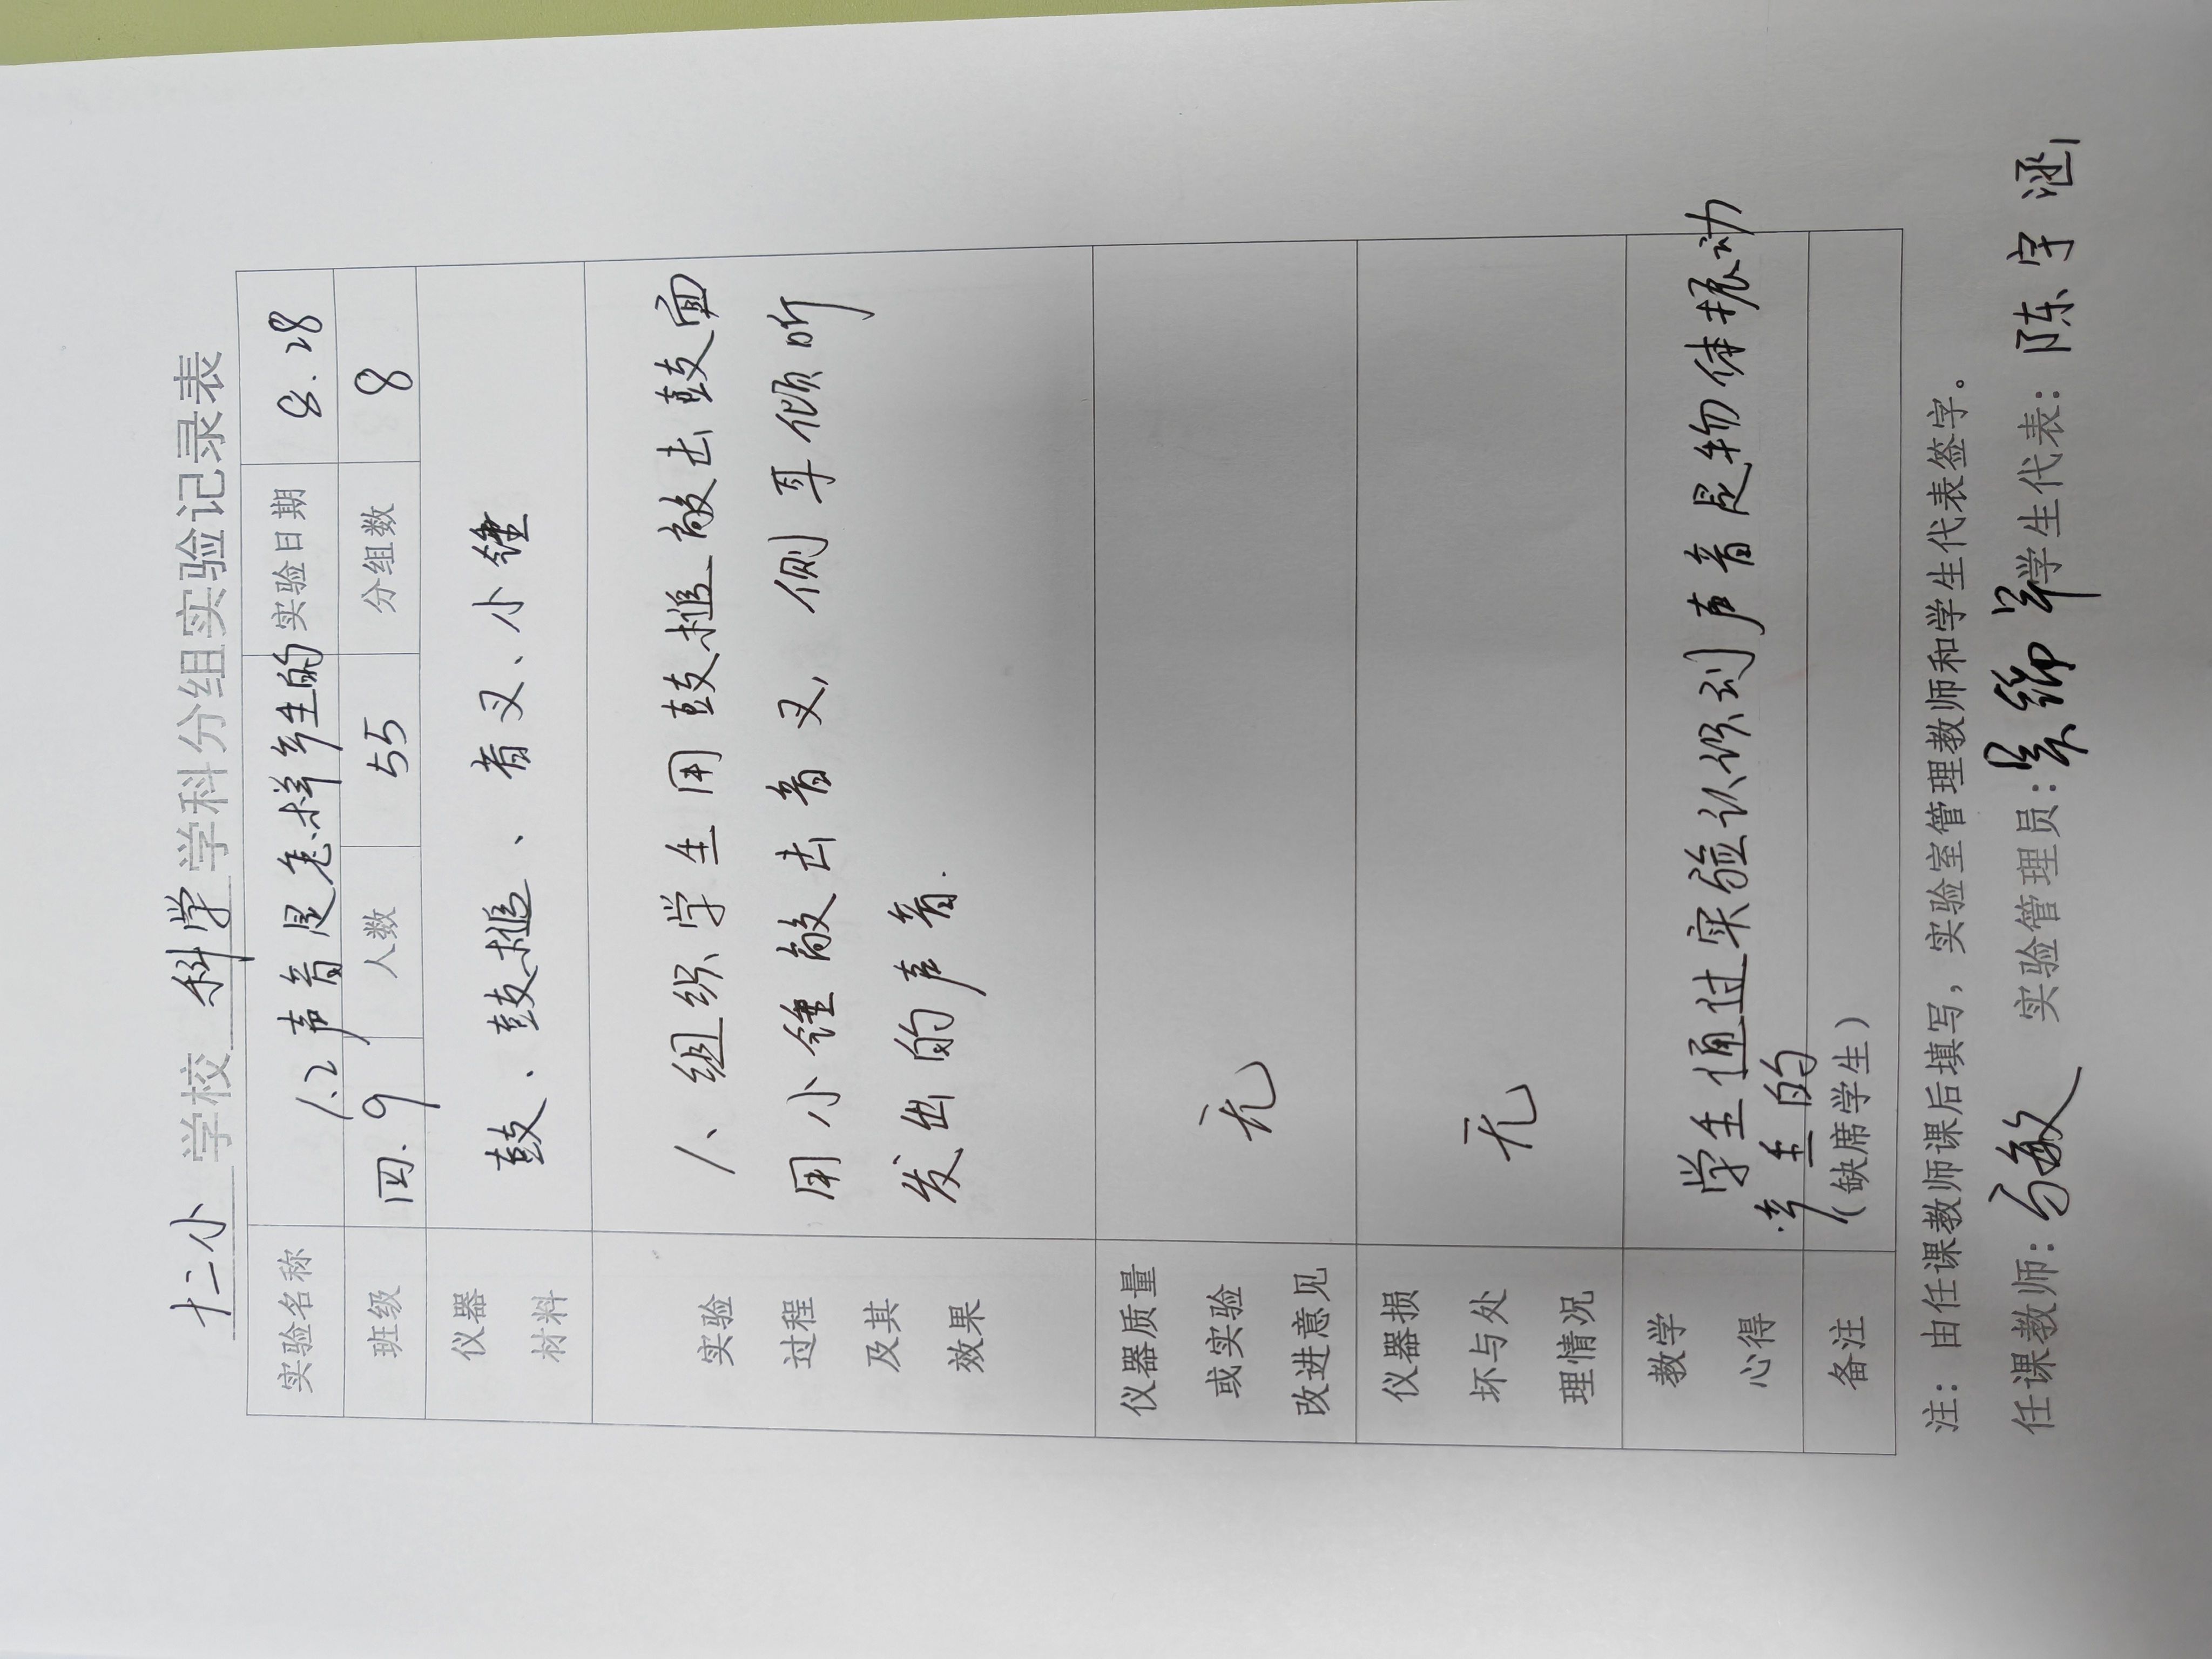 十二小 学校 科学 学科分组实验记录表
实验名称 1.2声音是怎样产生的 实验日期 8.28
班级 四.9 人数 55 分组数 8
仪器材料 鼓、鼓槌、音叉、小锤
实验过程及其效果
1、组织学生用鼓槌敲击鼓面
用小锤敲击音叉,侧耳倾听
发出的声音.
仪器质量或实验改进意见 无
仪器损坏与处理情况 无
教学心得 学生通过实验认识到声音是物体振动
产生的
备注 (缺席学生)
注:由任课教师课后填写,实验室管理教师和学生代表签字。
任课教师: 敏 实验管理员: 学生代表:陈宇涵